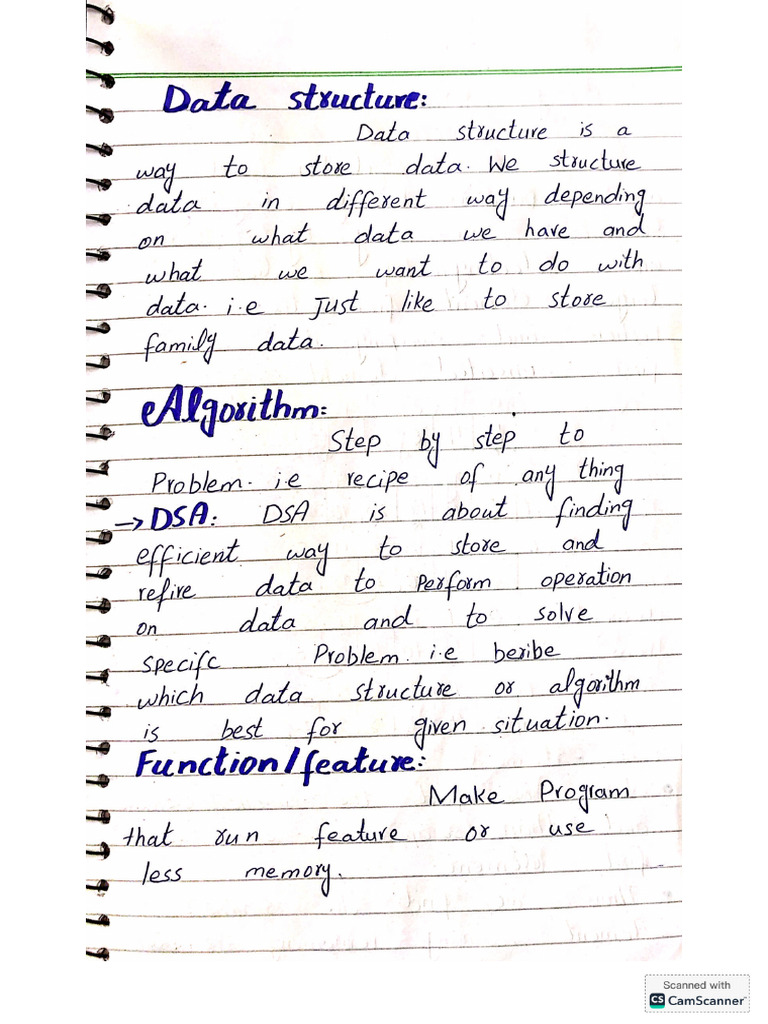 Data structure:
Data structure is a
way to store data. We structure
data in different way depending
on what data we have and
what we want to do with
data. i.e Just like to store
family data.
Algorithm:
Step by step to
Problem. i.e recipe of any thing
→ DSA: DSA is about finding
efficient way to store and
refire data to perform operation
on data and to solve
specifc Problem. i.e beribe
which data structure or algorithm
is best for given situation.
Function/feature:
Make Program
that run feature or use
less memory.
Scanned with
CS CamScanner